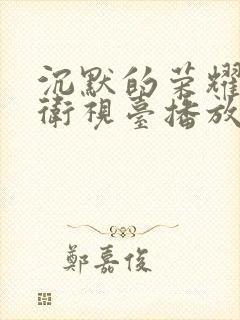 沉默的荣耀
衛視臺播放
鄭嘉俊